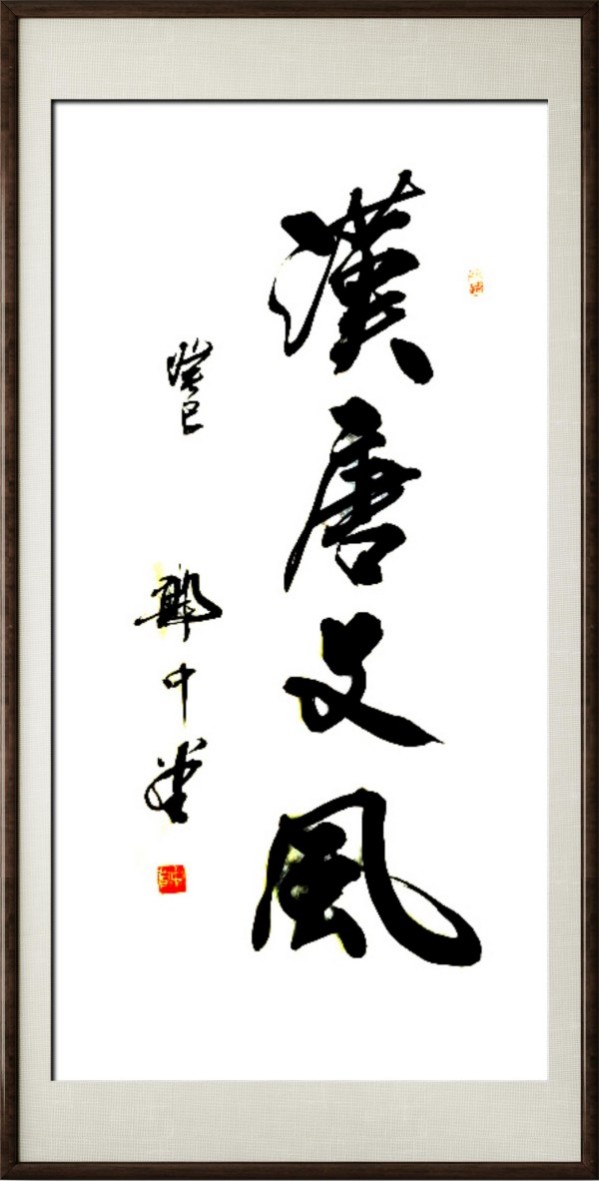 漢唐文風
癸巳
鄭中堂